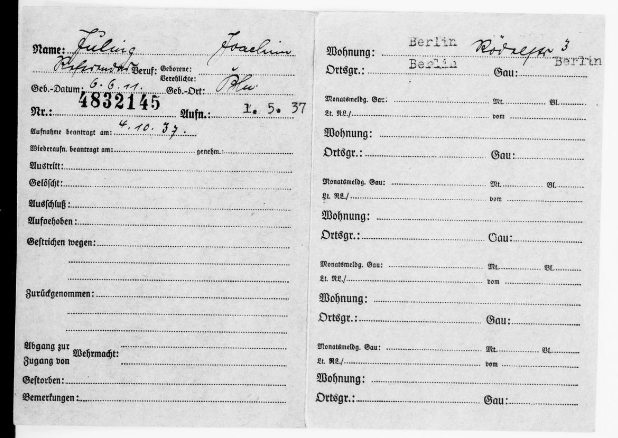 Name: Füling Joachim
Referendar Beruf: Geborene:
Verehlichte:
Geb.-Datum: 6.6.11. Geb.-Ort: Bln
Nr.: 4832145 Aufn.: 1. 5. 37
Aufnahme beantragt am: 4.10.37.
Wiederaufn. beantragt am: genehm.
Austritt:
Gelöscht:
Ausschluß:
Aufgehoben:
Gestrichen wegen:
Zurückgenommen:
Abgang zur
Zugang von Wehrmacht:
Gestorben:
Bemerkungen:
Wohnung: Berlin 3
Ortsgr.: Berlin Gau: Berlin
Monatsmeldg. Gau: Mt. Bl.
Lt. RL./ vom
Wohnung:
Ortsgr.: Gau:
Monatsmeldg. Gau: Mt. Bl.
Lt. RL./ vom
Wohnung:
Ortsgr.: Gau:
Monatsmeldg. Gau: Mt. Bl.
Lt. RL./ vom
Wohnung:
Ortsgr.: Gau:
Monatsmeldg. Gau: Mt. Bl.
Lt. RL./ vom
Wohnung:
Ortsgr.: Gau: